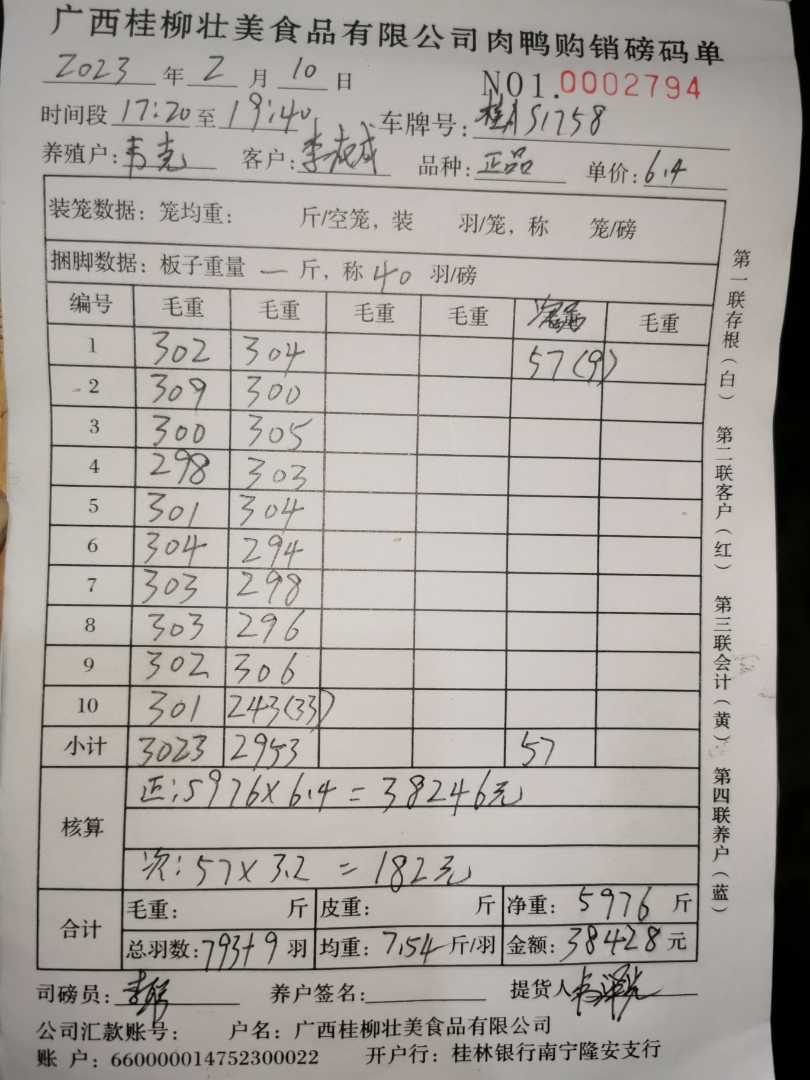 广西桂柳壮美食品有限公司肉鸭购销磅码单
2023 年 2 月 10 日 NO1.0002794
时间段 17:20 至 19:40 车牌号: 桂AS1758
养殖户: 韦 客户: 李 成 品种: 正品 单价: 6.4
装笼数据: 笼均重: 斤/空笼, 装 羽/笼, 称 笼/磅
捆脚数据: 板子重量 一 斤, 称 40 羽/磅
编号 毛重 毛重 毛重 毛重 毛重
1 302 304 57(9)
2 309 300
3 300 305
4 298 303
5 301 304
6 304 294
7 303 298
8 303 296
9 302 306
10 301 243(33)
小计 3023 2953 57
核算 正:5976×6.4=38246元
次:57×3.2=182元
合计 毛重: 斤 皮重: 斤 净重: 5976 斤
总羽数: 793+9 羽 均重: 7.54 斤/羽 金额: 38428 元
司磅员: 李 养户签名: 提货人
公司汇款账号: 户名: 广西桂柳壮美食品有限公司
账 户: 660000014752300022 开户行: 桂林银行南宁隆安支行
第一联存根(白) 第二联客户(红) 第三联会计(黄) 第四联养户(蓝)